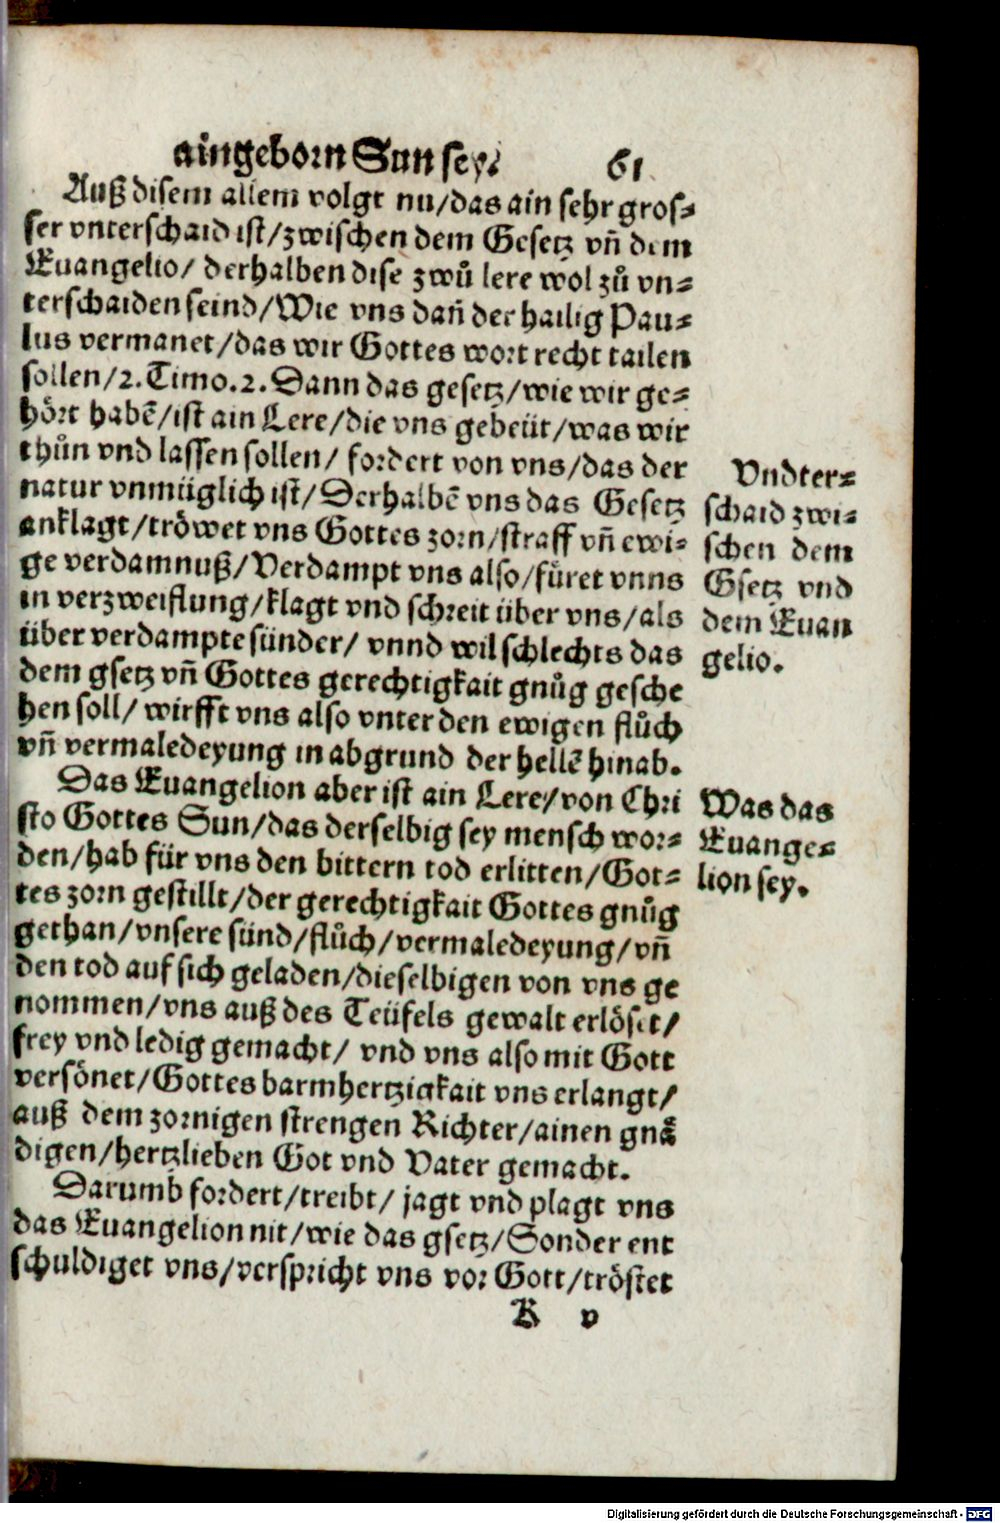 aingeborn Sun sey. 61
Auß disem allem volgt nu/das ain sehr gros-
ser vnterschaid ist/zwischen dem Gesetz vñ dem
Euangelio/ derhalben dise zwů lere wol zů vn-
terschaiden seind/Wie vns dañ der hailig Pau-
lus vermanet/das wir Gottes wort recht tailen
sollen/2.Timo.2.Dann das gesetz/wie wir ge-
hört habẽ/ist ain Lere/die vns gebeüt/was wir
thůn vnd lassen sollen/ fordert von vns/das der
natur vnmüglich ist/Derhalbẽ vns das Gesetz
anklagt/tröwet vns Gottes zorn/straff vñ ewi-
ge verdamnuß/Verdampt vns also/füret vnns
in verzweiflung/klagt vnd schreit über vns/als
über verdampte sünder/ vnnd wil schlechts das
dem gsetz vñ Gottes gerechtigkait gnůg gesche
hen soll/ wirfft vns also vnter den ewigen flůch
vñ vermaledeyung in abgrund der hellẽ hinab.
Vndter-
schaid zwi-
schen dem
Gsetz vnd
dem Euan
gelio.
Das Euangelion aber ist ain Lere/von Chri
sto Gottes Sun/das derselbig sey mensch wor-
den/hab für vns den bittern tod erlitten/Got-
tes zorn gestillt/der gerechtigkait Gottes gnůg
gethan/vnsere sünd/flůch/vermaledeyung/vñ
den tod auf sich geladen/dieselbigen von vns ge
nommen/vns auß des Teüfels gewalt erlöset/
frey vnd ledig gemacht/ vnd vns also mit Gott
versönet/Gottes barmhertzigkait vns erlangt/
auß dem zornigen strengen Richter/ainen gnä
digen/hertzlieben Got vnd Vater gemacht.
Was das
Euange-
lion sey.
Darumb fordert/treibt/ jagt vnd plagt vns
das Euangelion nit/wie das gsetz/Sonder ent
schuldiget vns/verspricht vns vor Gott/tröstet
K v
Digitalisierung gefördert durch die Deutsche Forschungsgemeinschaft - DFG